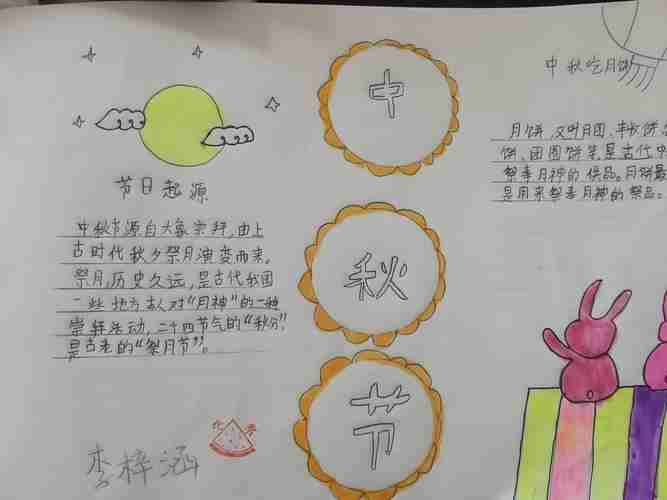 中
秋
节
节日起源
中秋节源自天象崇拜,由上
古时代秋夕祭月演变而来。
祭月,历史久远,是古代我国
一些地方古人对“月神”的一种
崇拜活动,二十四节气的“秋分”,
是古老的“祭月节”。
李梓涵
中秋吃月饼
月饼,又叫月团、丰收饼、
饼、团圆饼等,是古代中
祭拜月神的供品。月饼最
是用来祭奉月神的祭品。